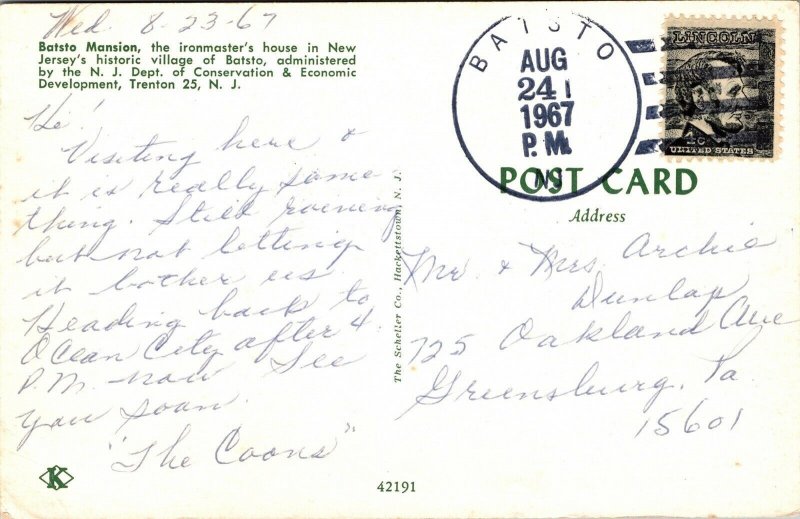 Wed. 8-23-67
Batsto Mansion, the ironmaster's house in New
Jersey's historic village of Batsto, administered
by the N. J. Dept. of Conservation & Economic
Development, Trenton 25, N. J.
Hi!
Visiting here &
it is really some
thing. Still raining
but not letting
it bother us.
Heading back to
Ocean City after 4
P.M. now See
you soon.
"The Coons"
K
The Scheller Co., Hackettstown, N. J.
42191
BATSTO
AUG
24
1967
P.M.
NJ
LINCOLN
4c
UNITED STATES
POST CARD
Address
Mr. & Mrs. Archie
Dunlap
725 Oakland Ave
Greensburg, Pa
15601